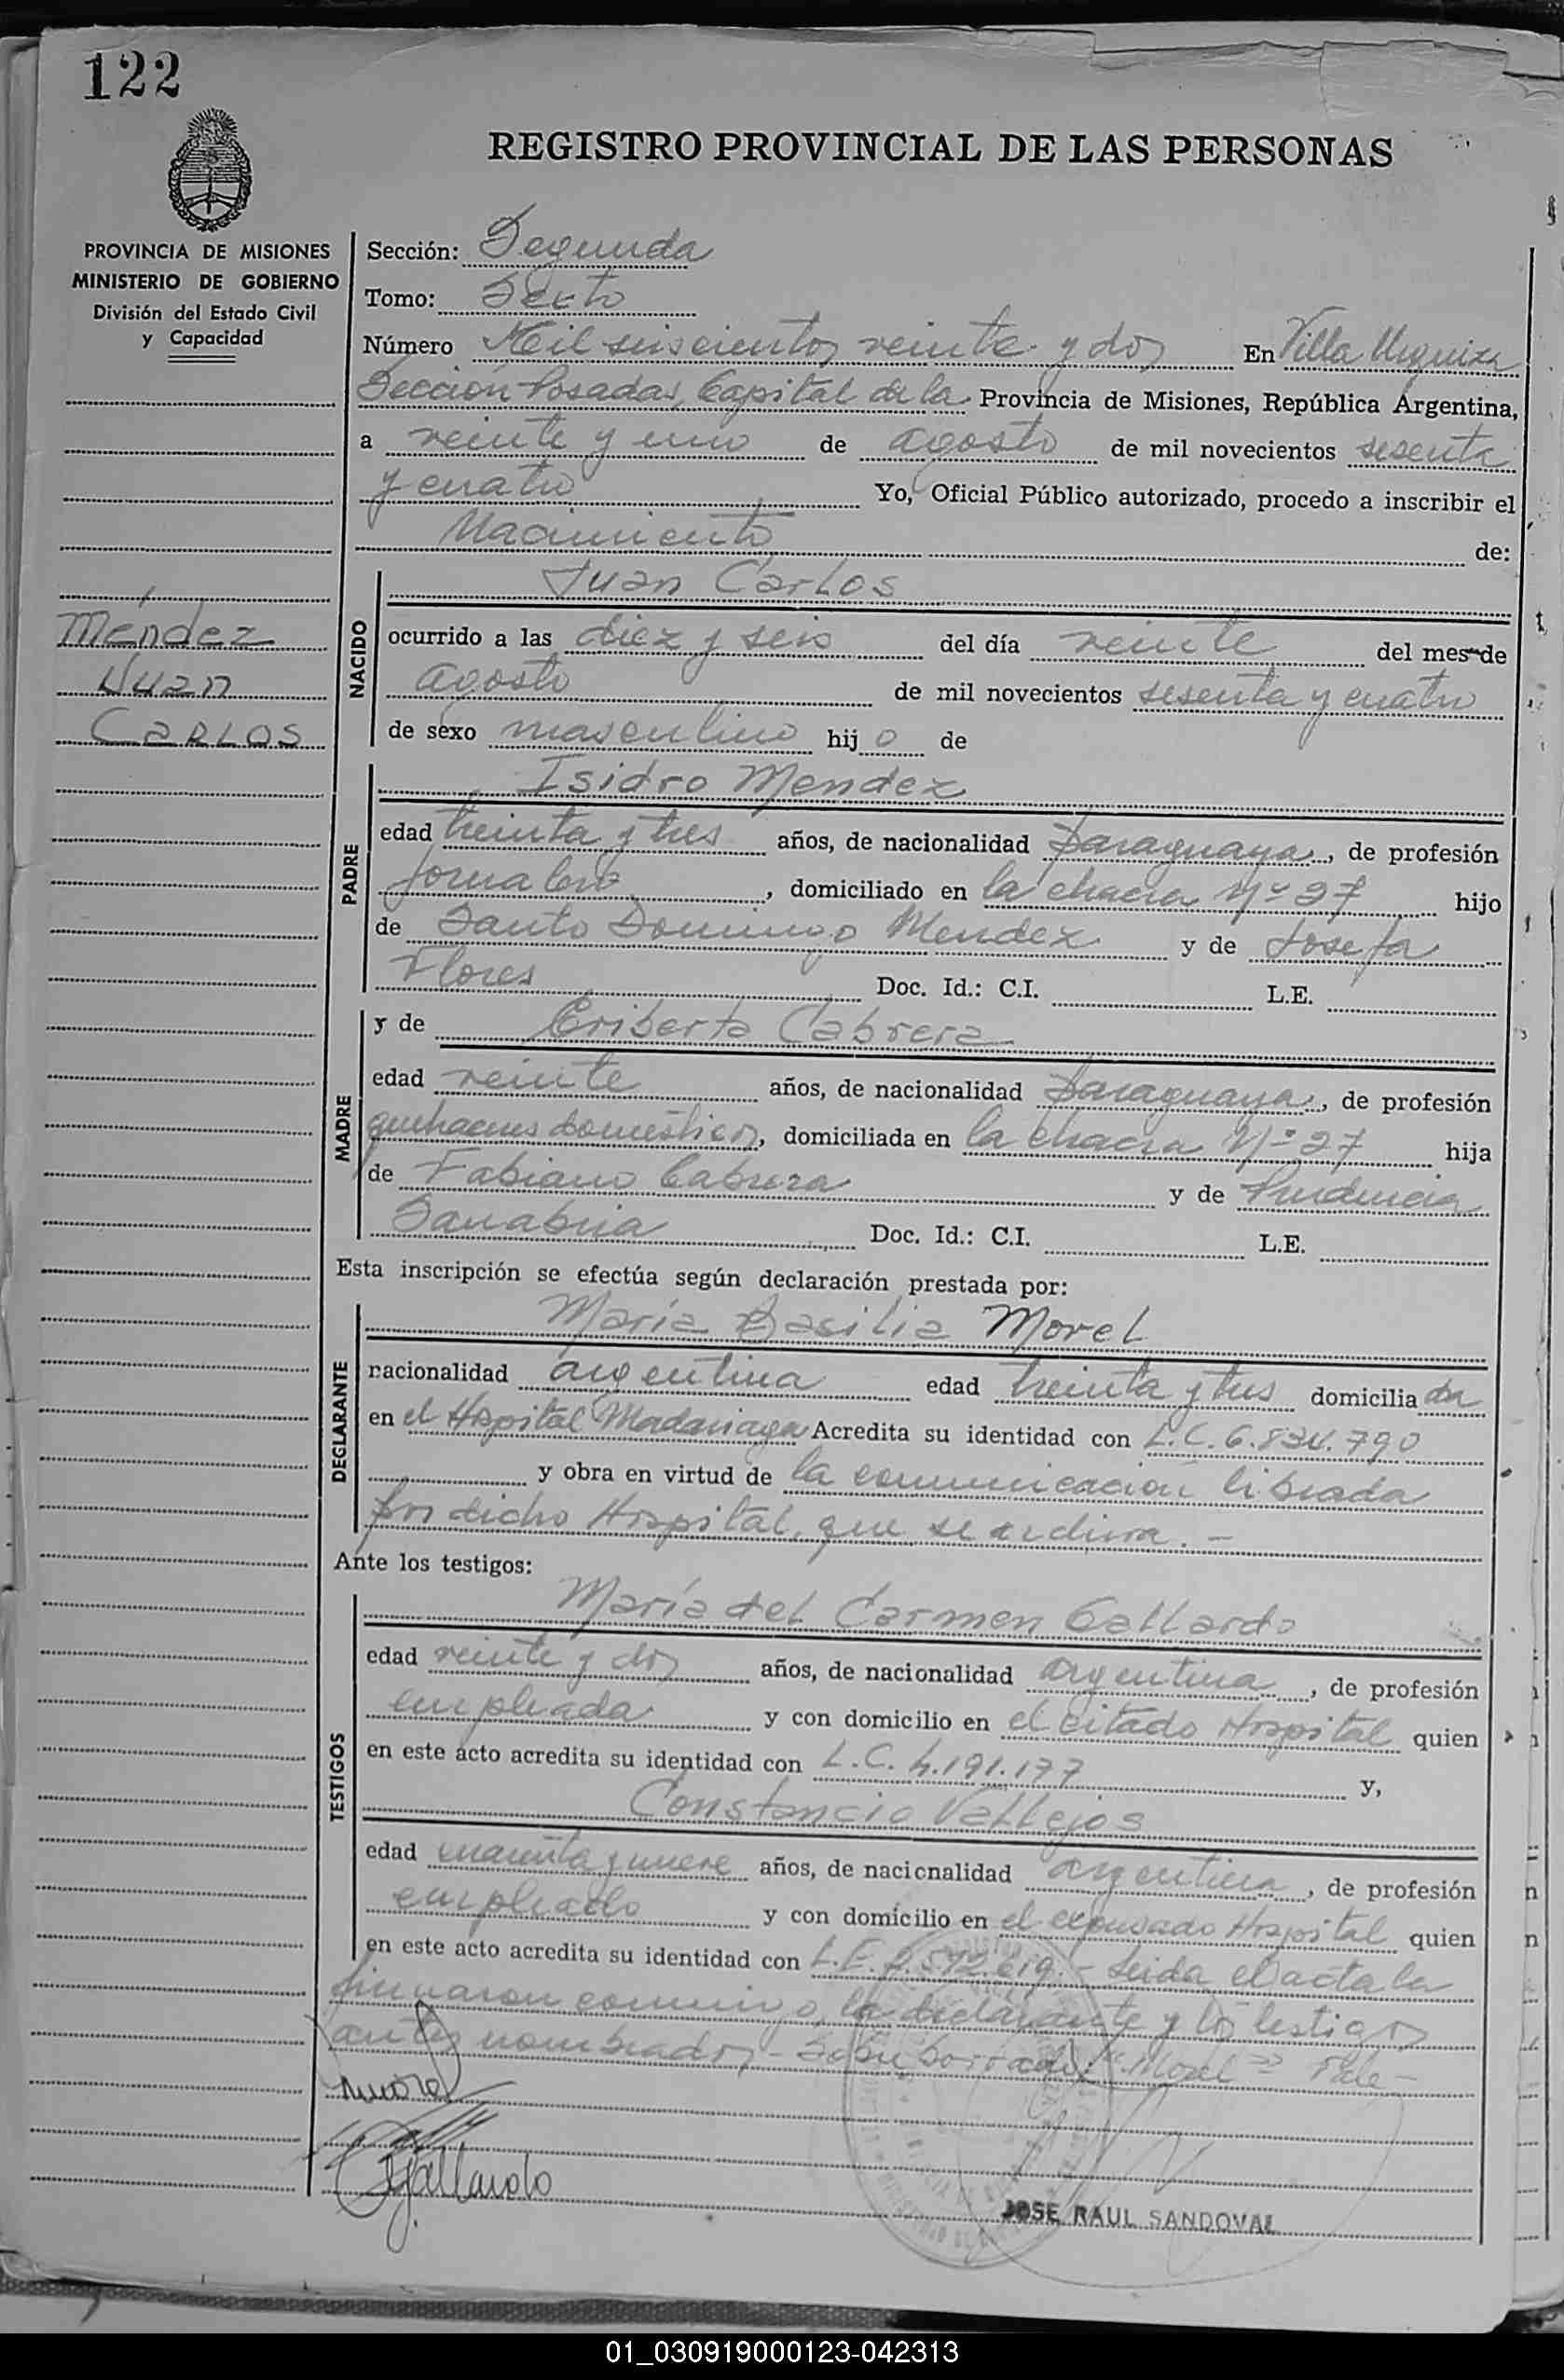 122
REGISTRO PROVINCIAL DE LAS PERSONAS
PROVINCIA DE MISIONES
MINISTERIO DE GOBIERNO
División del Estado Civil
y Capacidad
Méndez
Juan
Carlos
Sección: Segunda
Tomo: Sexto
Número Mil seiscientos veinte y dos En Villa Urquiza
Sección Posadas, Capital de la Provincia de Misiones, República Argentina,
a veinte y uno de agosto de mil novecientos sesenta
y cuatro Yo, Oficial Público autorizado, procedo a inscribir el
Nacimiento de:
NACIDO
Juan Carlos
ocurrido a las diez y seis del día veinte del mes de
agosto de mil novecientos sesenta y cuatro
de sexo masculino hijo de
PADRE
Isidro Mendez
edad treinta y tres años, de nacionalidad paraguaya, de profesión
jornalero, domiciliado en la chacra Nº 27 hijo
de Santo Domingo Mendez y de Josefa
Flores Doc. Id.: C.I. L.E.
MADRE
y de Eriberta Cabrera
edad veinte años, de nacionalidad paraguaya, de profesión
quehaceres domésticos, domiciliada en la chacra Nº 27 hija
de Fabiano Cabrera y de Prudencia
Sanabria Doc. Id.: C.I. L.E.
Esta inscripción se efectúa según declaración prestada por:
DECLARANTE
María Basilia Morel
nacionalidad argentina edad treinta y tres domiciliada
en el Hospital Madariaga Acredita su identidad con L.C. 6.834.790
y obra en virtud de la comunicación librada
por dicho Hospital, que se archiva.-
Ante los testigos:
TESTIGOS
María del Carmen Gallardo
edad veinte y dos años, de nacionalidad argentina, de profesión
empleada y con domicilio en el citado Hospital quien
en este acto acredita su identidad con L.C. 4.191.177 y,
Constancio Vallejos
edad cuarenta y nueve años, de nacionalidad argentina, de profesión
empleado y con domicilio en el expresado Hospital quien
en este acto acredita su identidad con L.E. 2.572.619.- Leida el acta la
firmaron conmigo, la declarante y los testigos
antes nombrados.- Sobre borrado: "Morel" Vale-
Gallardo
JOSE RAUL SANDOVAL
01_030919000123-042313